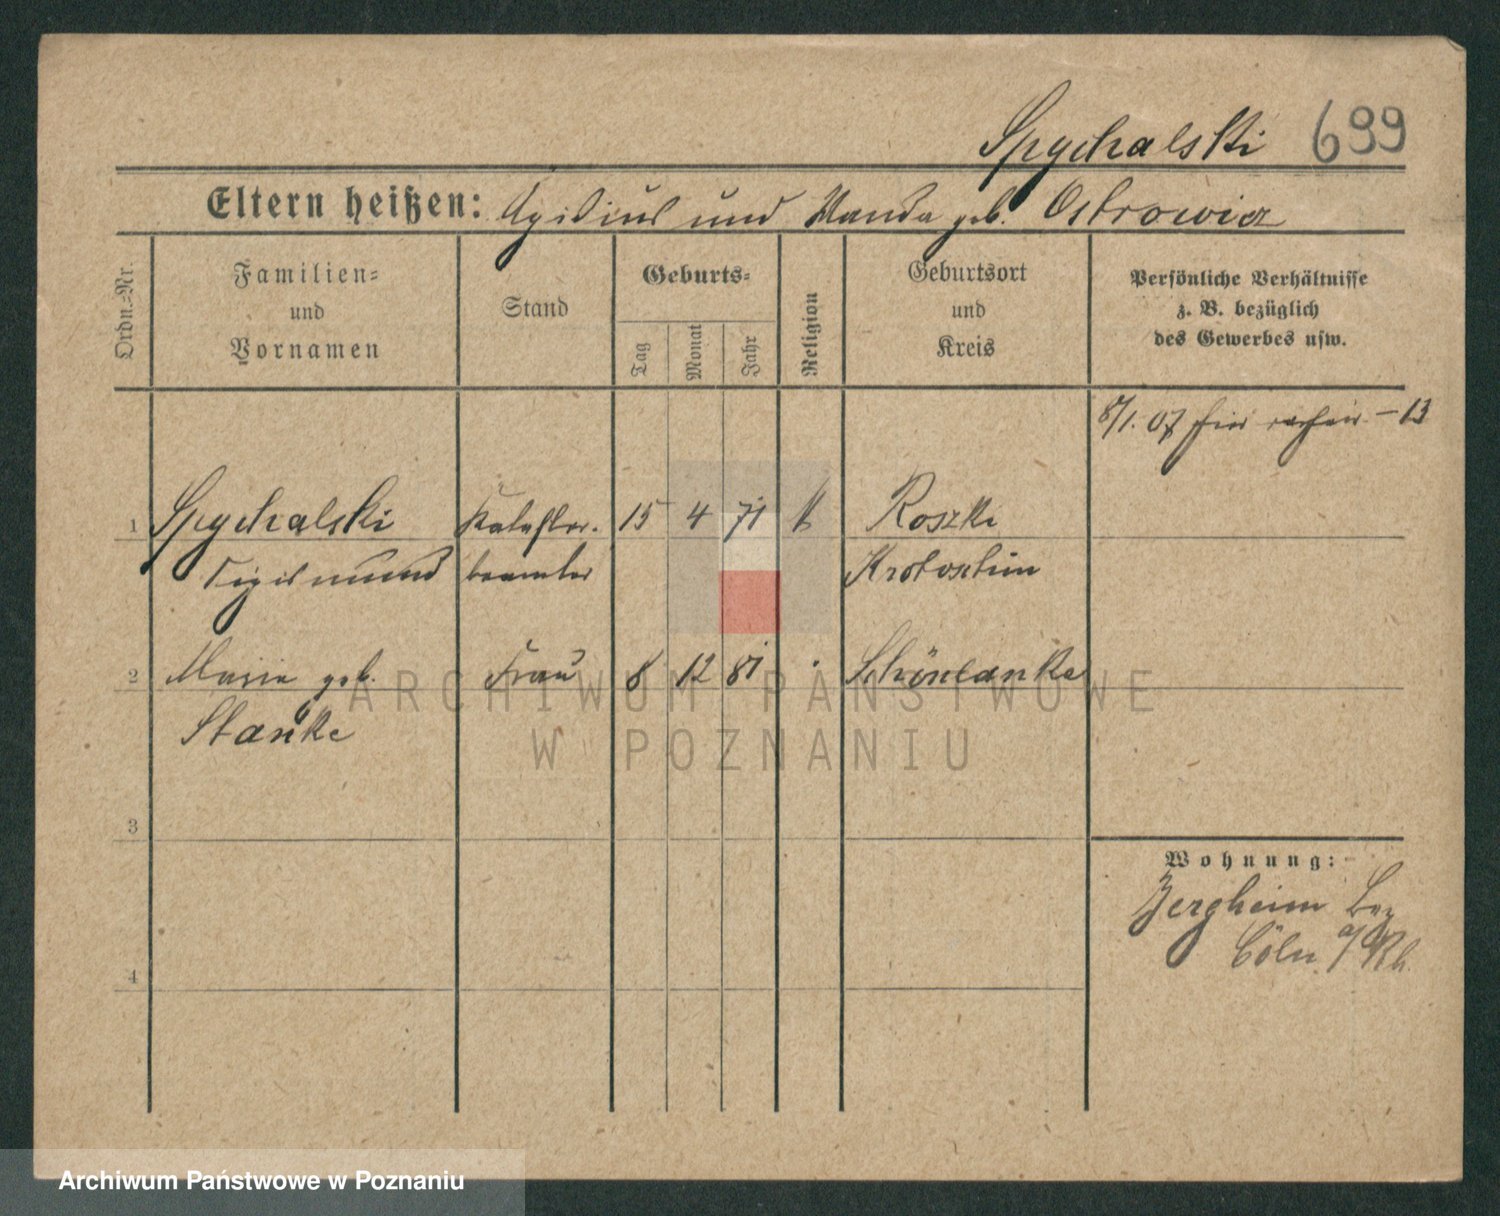 Spychalski 699
Eltern heißen: Egidius und Wanda geb. Ostrowicz
Ordn.=Nr.
Familien=
und
Vornamen
Stand
Geburts=
Tag
Monat
Jahr
Religion
Geburtsort
und
Kreis
Persönliche Verhältnisse
z. B. bezüglich
des Gewerbes usw.
8/1. 07 hier – 13
1 Spychalski Kataster- 15 4 71 k Roszki
Sigismund beamter Krotoschin
2 Maria geb. Frau 8 12 81 " Schönlanke
Stanke
3
Wohnung:
Bergheim Bez
Cöln a/Rh.
4
ARCHIWUM PAŃSTWOWE
W POZNANIU
Archiwum Państwowe w Poznaniu